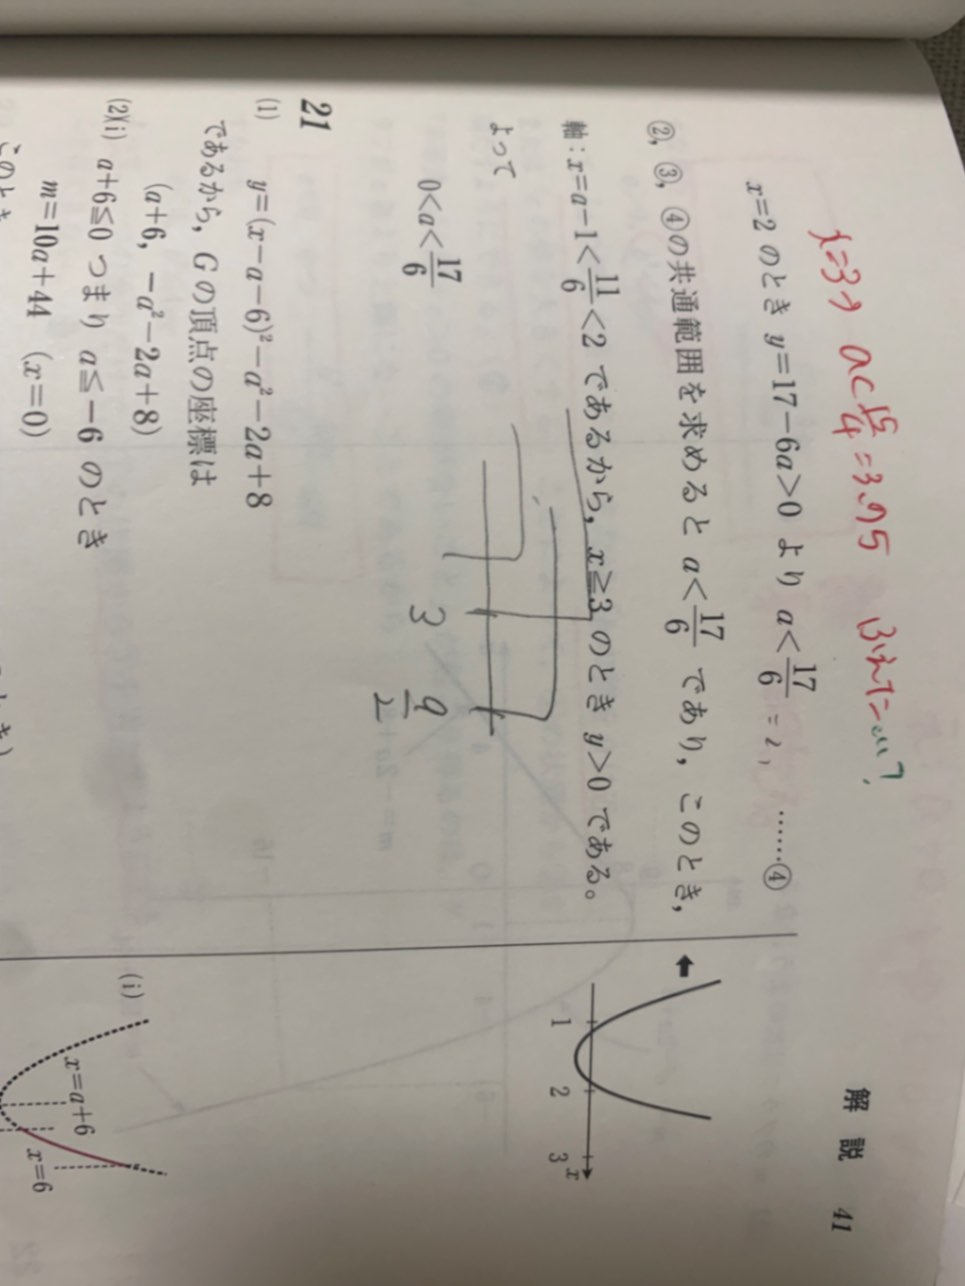 解 説 41
x=3の
a<15/4=3.75
x=2 のとき y=17−6a>0 より a<17/6 ……④
②, ③, ④の共通範囲を求めると a<17/6 であり, このとき,
軸:x=a−1<11/6<2 であるから, x≧3 のとき y>0 である。
よって
0<a<17/6
3 9/2
1 2 3 x
21
(1) y=(x−a−6)²−a²−2a+8
であるから, G の頂点の座標は
(a+6, −a²−2a+8)
(2)(i) a+6≦0 つまり a≦−6 のとき
m=10a+44 (x=0)
このとき
(i)
x=a+6
x=6